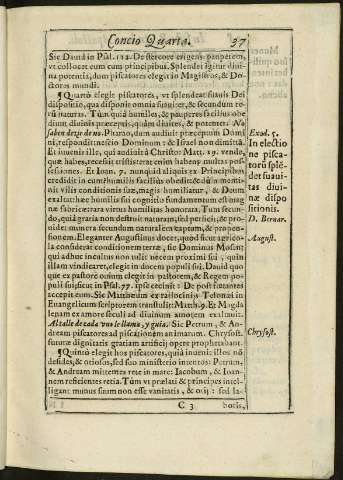 Concio Quarta.
37
Sic Dauid in Psal. 112. De stercore erigens pauperem,
vt collocet eum cum principibus. Splendet igitur diui-
na potentia, dum piscatores elegit in Magistros, & Do-
ctores mundi.
¶ Quartò elegit piscatores, vt splendeat suauis Dei
dispositio, qua disponit omnia suauiter, & secundum re-
rū naturas. Tum quia humiles, & pauperes facilius obe
diunt diuinis præceptis, quàm diuites, & potentes: No
saben dezir de no. Pharao, dum audiuit præceptum Domi
ni, respondit nescio Dominum: & Israel non dimittā.
Et iuuenis ille, qui audiuit à Christo: Matt. 19. vende,
quæ habes, recessit tristis: erat enim habens multas pos-
sessiones. Et Ioan. 7. nunquid aliquis ex Principibus
credidit in eum? humilis facilius obedit: & dū à morta-
li viris conditionis suæ, magis humiliatur, & Deum
exaltat: hæc humilis sui cognitio fundamentum est magnæ
fabricæ: rara virtus humilitas honorata. Tum secun-
do, quia gratia non destruit naturam, sed perficit, & pro-
uidet munera secundum naturalem captum, & propen-
sionem. Eleganter Augustinus docet, quod sicut agrico-
la considerat conditionem terræ, sic Dominus Mosem,
qui adhuc incultus non tulit necem proximi sui, quin
illam vindicaret, elegit in ducem populi sui. Dauid quo
que ex pastore ouium elegit in pastorem, & Regem po-
puli sui, sicut in Psal. 77. ipse cecinit: De post fœtantes
accepit eum. Sic Matthæum ex ratiociniis Telonai in
Euangelicum scriptorem transtulit: Matth. 9. Et Magda
lenam ex amore sæculi ad diuinum amorem exaltauit.
Al talle de cada vno le llama, y guia. Sic Petrum, & An-
dream piscatores ad piscationem animarum. Chrysost.
futuræ dignitatis gratiam artificij opere prophetabant.
¶ Quintò elegit hos piscatores, quia inuenit illos nō
desides, & otiosos, sed suo ministerio intentos: Petrum,
& Andream mittentes rete in mare: Iacobum, & Ioan-
nem reficientes retia. Tum vt prælati & principes intel-
ligant munus suum non esse vanitatis, & otij: sed la-
C 3
boris,
Exod. 5.
In electio
ne pisca-
torū splē-
det suaui-
tas diui-
næ dispo
sitionis.
D. Bernar.
August.
Chrysost.